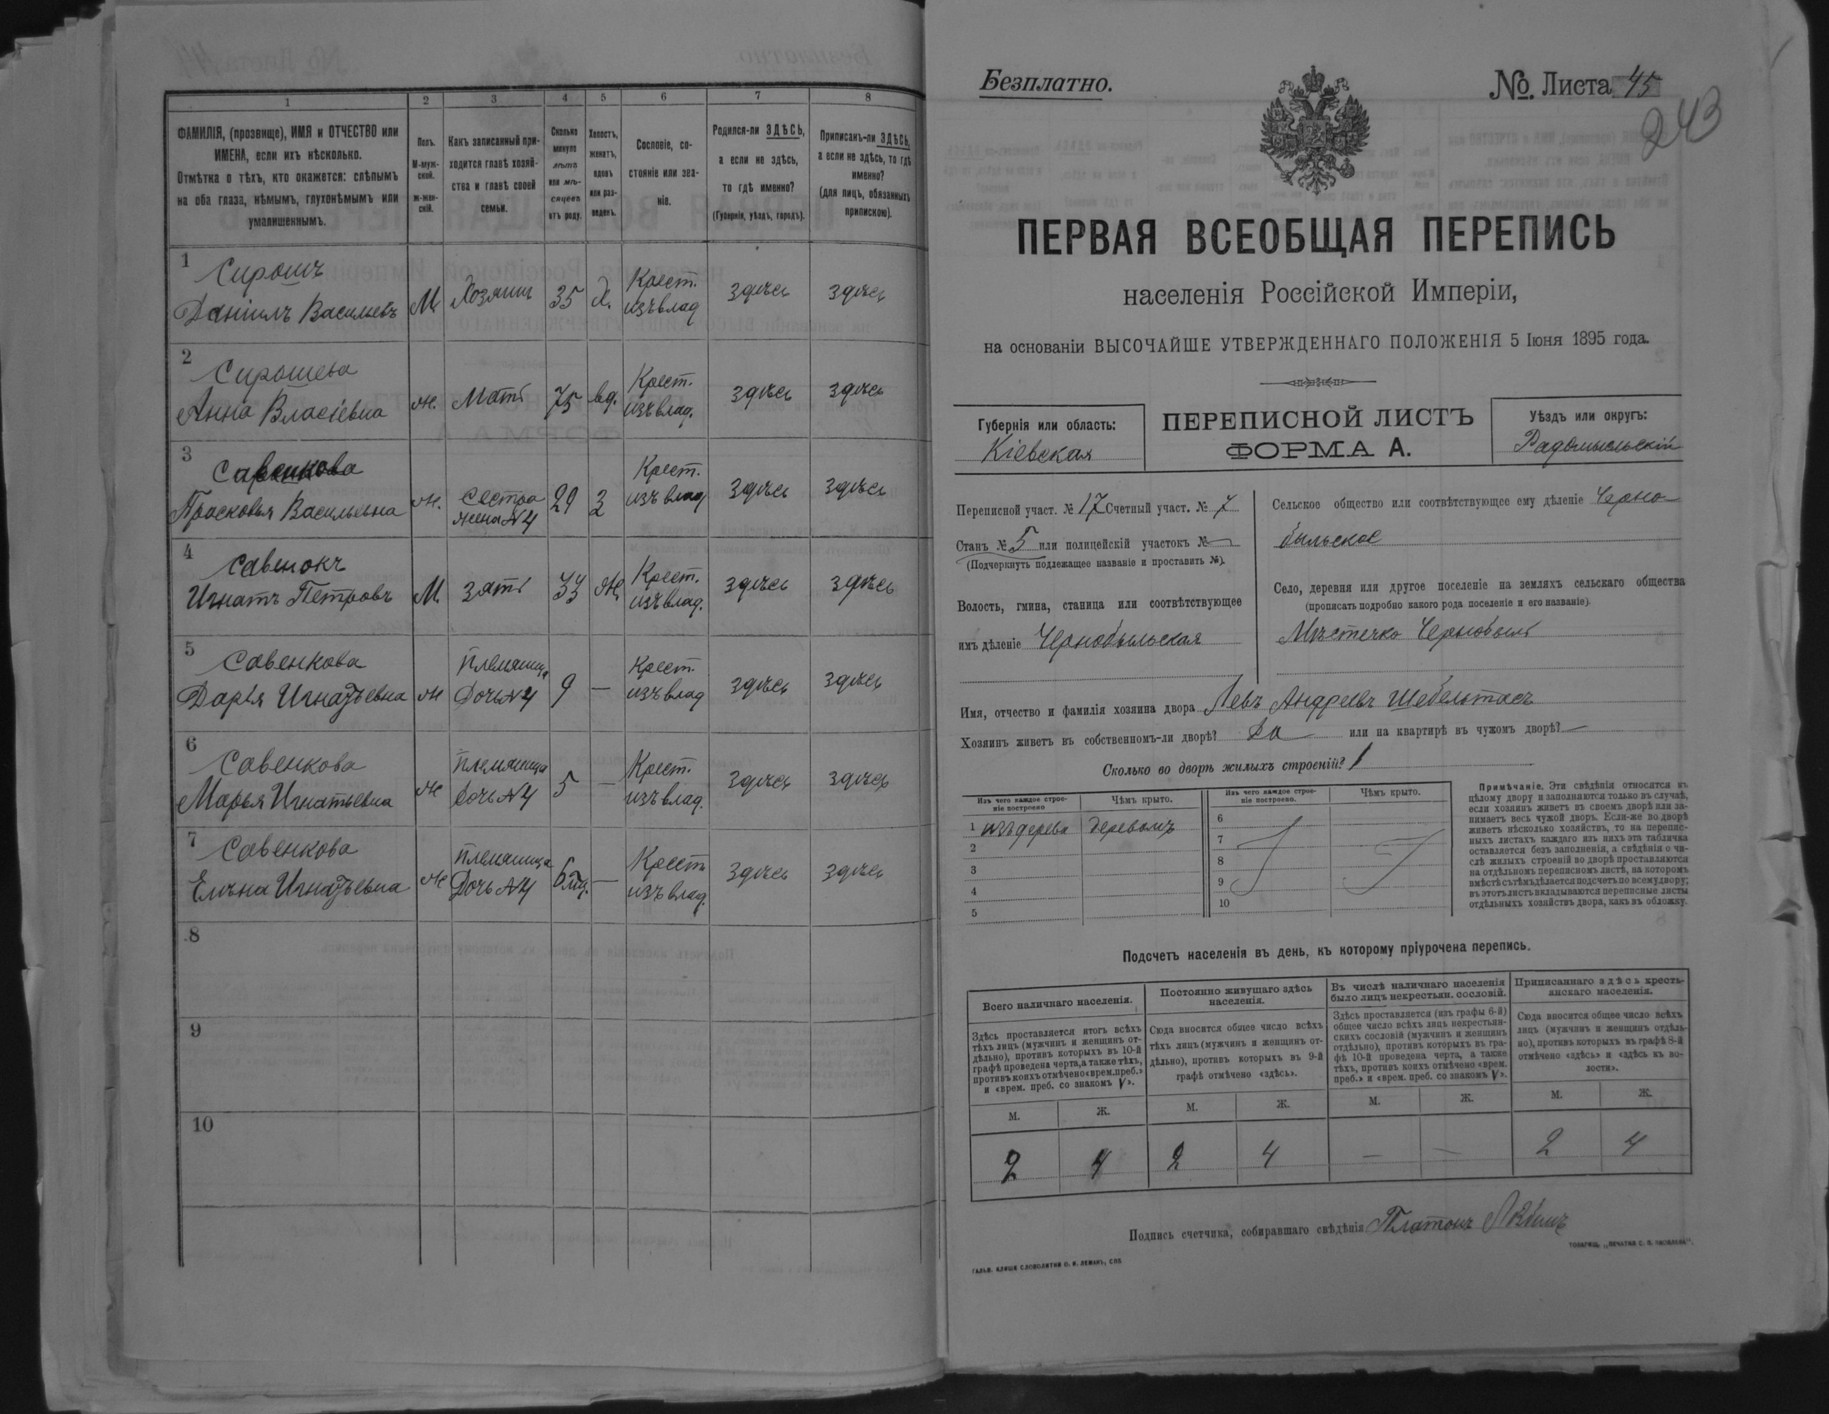 1 2 3 4 5 6 7 8
ФАМИЛІЯ, (прозвище), ИМЯ и ОТЧЕСТВО или
ИМЕНА, если ихъ нѣсколько.
Отмѣтка о тѣхъ, кто окажется: слѣпымъ
на оба глаза, нѣмымъ, глухонѣмымъ или
умалишеннымъ.
Полъ.
М-муж-
ской.
ж-жен-
скій.
Какъ записанный при-
ходится главѣ хозяй-
ства и главѣ своей
семьи.
Сколько
минуло
лѣтъ
или мѣ-
сяцевъ
отъ роду.
Холостъ,
женатъ,
вдовъ
или раз-
веденъ.
Сословіе, со-
стояніе или зва-
ніе.
Родился-ли ЗДѢСЬ,
а если не здѣсь,
то гдѣ именно?
(Губернія, уѣздъ, городъ).
Приписанъ-ли ЗДѢСЬ,
а если не здѣсь, то гдѣ
именно?
(для лицъ, обязанныхъ
припискою).
1
Сирошъ
Даніилъ Васильевъ М Хозяинъ 35 Х. Крест.
изъ влад здѣсь здѣсь
2
Сирошева
Анна Власіевна ж. Мать 75 вд. Крест.
изъ влад. здѣсь здѣсь
3
Савенкова
Просковья Васильевна ж. Сестра
жена №4 29 З Крест.
изъ влад здѣсь здѣсь
4
Савенокъ
Игнатъ Петровъ М. Зять 33 Ж Крест.
изъ влад. здѣсь здѣсь
5
Савенкова
Дарья Игнатьевна ж Племяница
Дочь №4 9 — Крест.
изъ влад здѣсь здѣсь
6
Савенкова
Марья Игнатьевна ж Племяница
Дочь №4 5 — Крест.
изъ влад. здѣсь здѣсь
7
Савенкова
Елѣна Игнатьевна ж Племяница
Дочь №4 6 мц. — Крестъ
изъ влад. здѣсь здѣсь
8
9
10
Безплатно.
№. Листа 45
243
ПЕРВАЯ ВСЕОБЩАЯ ПЕРЕПИСЬ
населенія Россійской Имперіи,
на основаніи ВЫСОЧАЙШЕ УТВЕРЖДЕННАГО ПОЛОЖЕНІЯ 5 Іюня 1895 года.
Губернія или область:
Кіевская
ПЕРЕПИСНОЙ ЛИСТЪ
ФОРМА А.
Уѣздъ или округъ:
Радомысльскій
Переписной участ. № 17 Счетный участ. № 7
Станъ № 5 или полицейскій участокъ № —
(Подчеркнуть подлежащее названіе и проставить №).
Волость, гмина, станица или соотвѣтствующее
имъ дѣленіе Чернобыльская
Сельское общество или соотвѣтствующее ему дѣленіе Черно-
быльское
Село, деревня или другое поселеніе на земляхъ сельскаго общества
(прописать подробно какого рода поселеніе и его названіе).
Мѣстечко Чернобыль
Имя, отчество и фамилія хозяина двора Левъ Андреевъ
Хозяинъ живетъ въ собственномъ-ли дворѣ? Да или на квартирѣ въ чужомъ дворѣ? —
Сколько во дворѣ жилыхъ строеній? 1
Изъ чего каждое строе-
ніе построено
Чѣмъ крыто.
Изъ чего каждое строе-
ніе построено.
Чѣмъ крыто.
1 изъ дерева деревомъ
2
3
4
5
6
7
8
9
10
Примѣчаніе. Эти свѣдѣнія относятся къ
цѣлому двору и заполняются только въ случаѣ,
если хозяинъ живетъ въ своемъ дворѣ или за-
нимаетъ весь чужой дворъ. Если-же во дворѣ
живетъ нѣсколько хозяйствъ, то на перепис-
ныхъ листахъ каждаго изъ нихъ эта табличка
оставляется безъ заполненія, а свѣдѣнія о чи-
слѣ жилыхъ строеній во дворѣ проставляются
на отдѣльномъ переписномъ листѣ, на которомъ
вмѣстѣ съ тѣмъ дѣлается подсчетъ по всему двору;
въ этотъ листъ вкладываются переписные листы
отдѣльныхъ хозяйствъ двора, какъ въ обложку.
Подсчетъ населенія въ день, къ которому пріурочена перепись.
Всего наличнаго населенія.
Постоянно живущаго здѣсь
населенія.
Въ числѣ наличнаго населенія
было лицъ некрестьян. сословій.
Приписаннаго здѣсь кресть-
янскаго населенія.
Здѣсь проставляется итогъ всѣхъ
тѣхъ лицъ (мужчинъ и женщинъ от-
дѣльно), противъ которыхъ въ 10-й
графѣ проведена черта, а также тѣхъ,
противъ коихъ отмѣчено «врем. преб.»
и «врем. преб. со знакомъ V».
Сюда вносится общее число всѣхъ
тѣхъ лицъ (мужчинъ и женщинъ от-
дѣльно), противъ которыхъ въ 9-й
графѣ отмѣчено «здѣсь».
Здѣсь проставляется (изъ графы 6-й)
общее число всѣхъ лицъ некрестьян-
скихъ сословій (мужчинъ и женщинъ
отдѣльно), противъ которыхъ въ гра-
фѣ 10-й проведена черта, а также
тѣхъ, противъ коихъ отмѣчено «врем.
преб.» и «врем. преб. со знакомъ V».
Сюда вносится общее число всѣхъ
лицъ (мужчинъ и женщинъ отдѣль-
но), противъ которыхъ въ графѣ 8-й
отмѣчено «здѣсь» и «здѣсь въ во-
лости».
М. Ж. М. Ж. М. Ж. М. Ж.
2 4 2 4 — — 2 4
Подпись счетчика, собиравшаго свѣдѣнія Платонъ